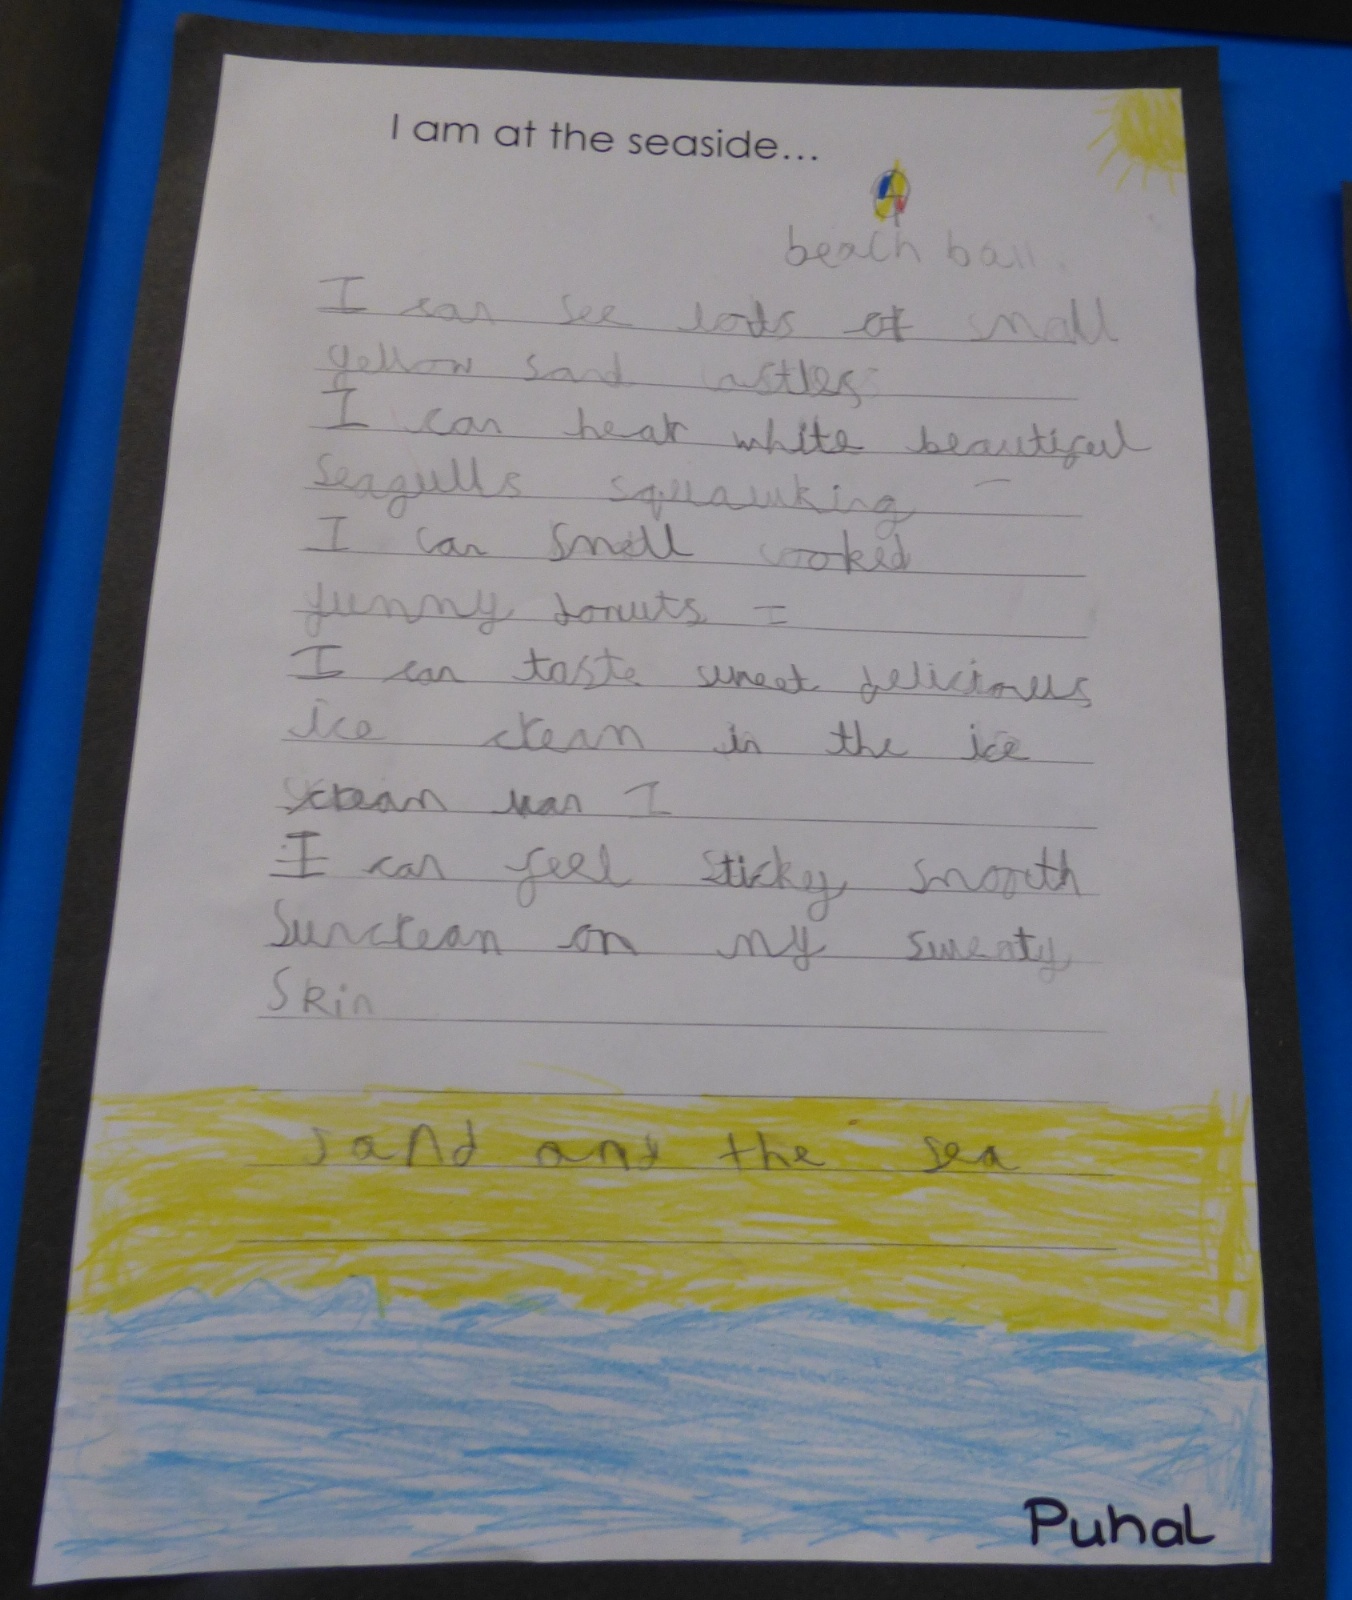 I am at the seaside...
beach ball.
I can see lods of small
yellow sand castles
I can hear white beautiful
seagulls squawking
I can smell cooked
funny donuts
I can taste sweet delicious
ice cream in the ice
cream van I
I can feel sticky smooth
Suncream on my sweaty
Skin
sand and the sea
Puhal